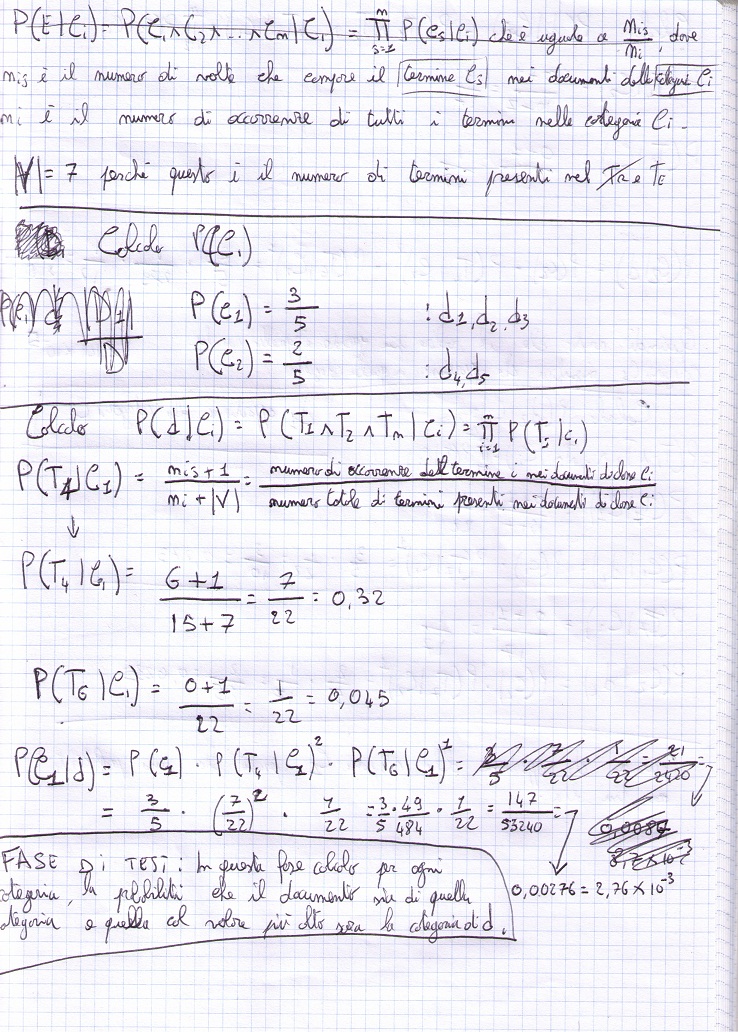 P(E|Ci) = P(e1 ∧ e2 ∧ ... ∧ em | Ci) = ∏ s=1 m P(es|ci) che è uguale a mis/mi, dove
mis è il numero di volte che compare il termine es nei documenti della categoria Ci
mi è il numero di occorrenze di tutti i termini nella categoria Ci.
|V| = 7 perché questo è il numero di termini presenti nel TR e TE
Calcolo P(Ci)
P(C1) = 3/5 : d1, d2, d3
P(C2) = 2/5 : d4, d5
Calcolo P(d|Ci) = P(T1 ∧ T2 ∧ Tm | Ci) = ∏ i=1 m P(Ts|ci)
P(T4|C1) = mis+1 / mi+|V| = numero di occorrenze del termine i nei documenti di classe Ci / numero totale di termini presenti nei documenti di classe Ci
↓
P(T4|C1) = 6+1 / 15+7 = 7/22 = 0,32
P(T6|C1) = 0+1 / 22 = 1/22 = 0,045
P(C1|d) = P(c1) · P(T4|C1)² · P(T6|C1)¹ =
= 3/5 · (7/22)² · 1/22 = 3/5 · 49/484 · 1/22 = 147/53240 =
0,00276 = 2,76 × 10⁻³
FASE Di TEST: In questa fase calcolo per ogni
categoria, la probabilità che il documento sia di quella
categoria e quella col valore più alto sarà la categoria di d.